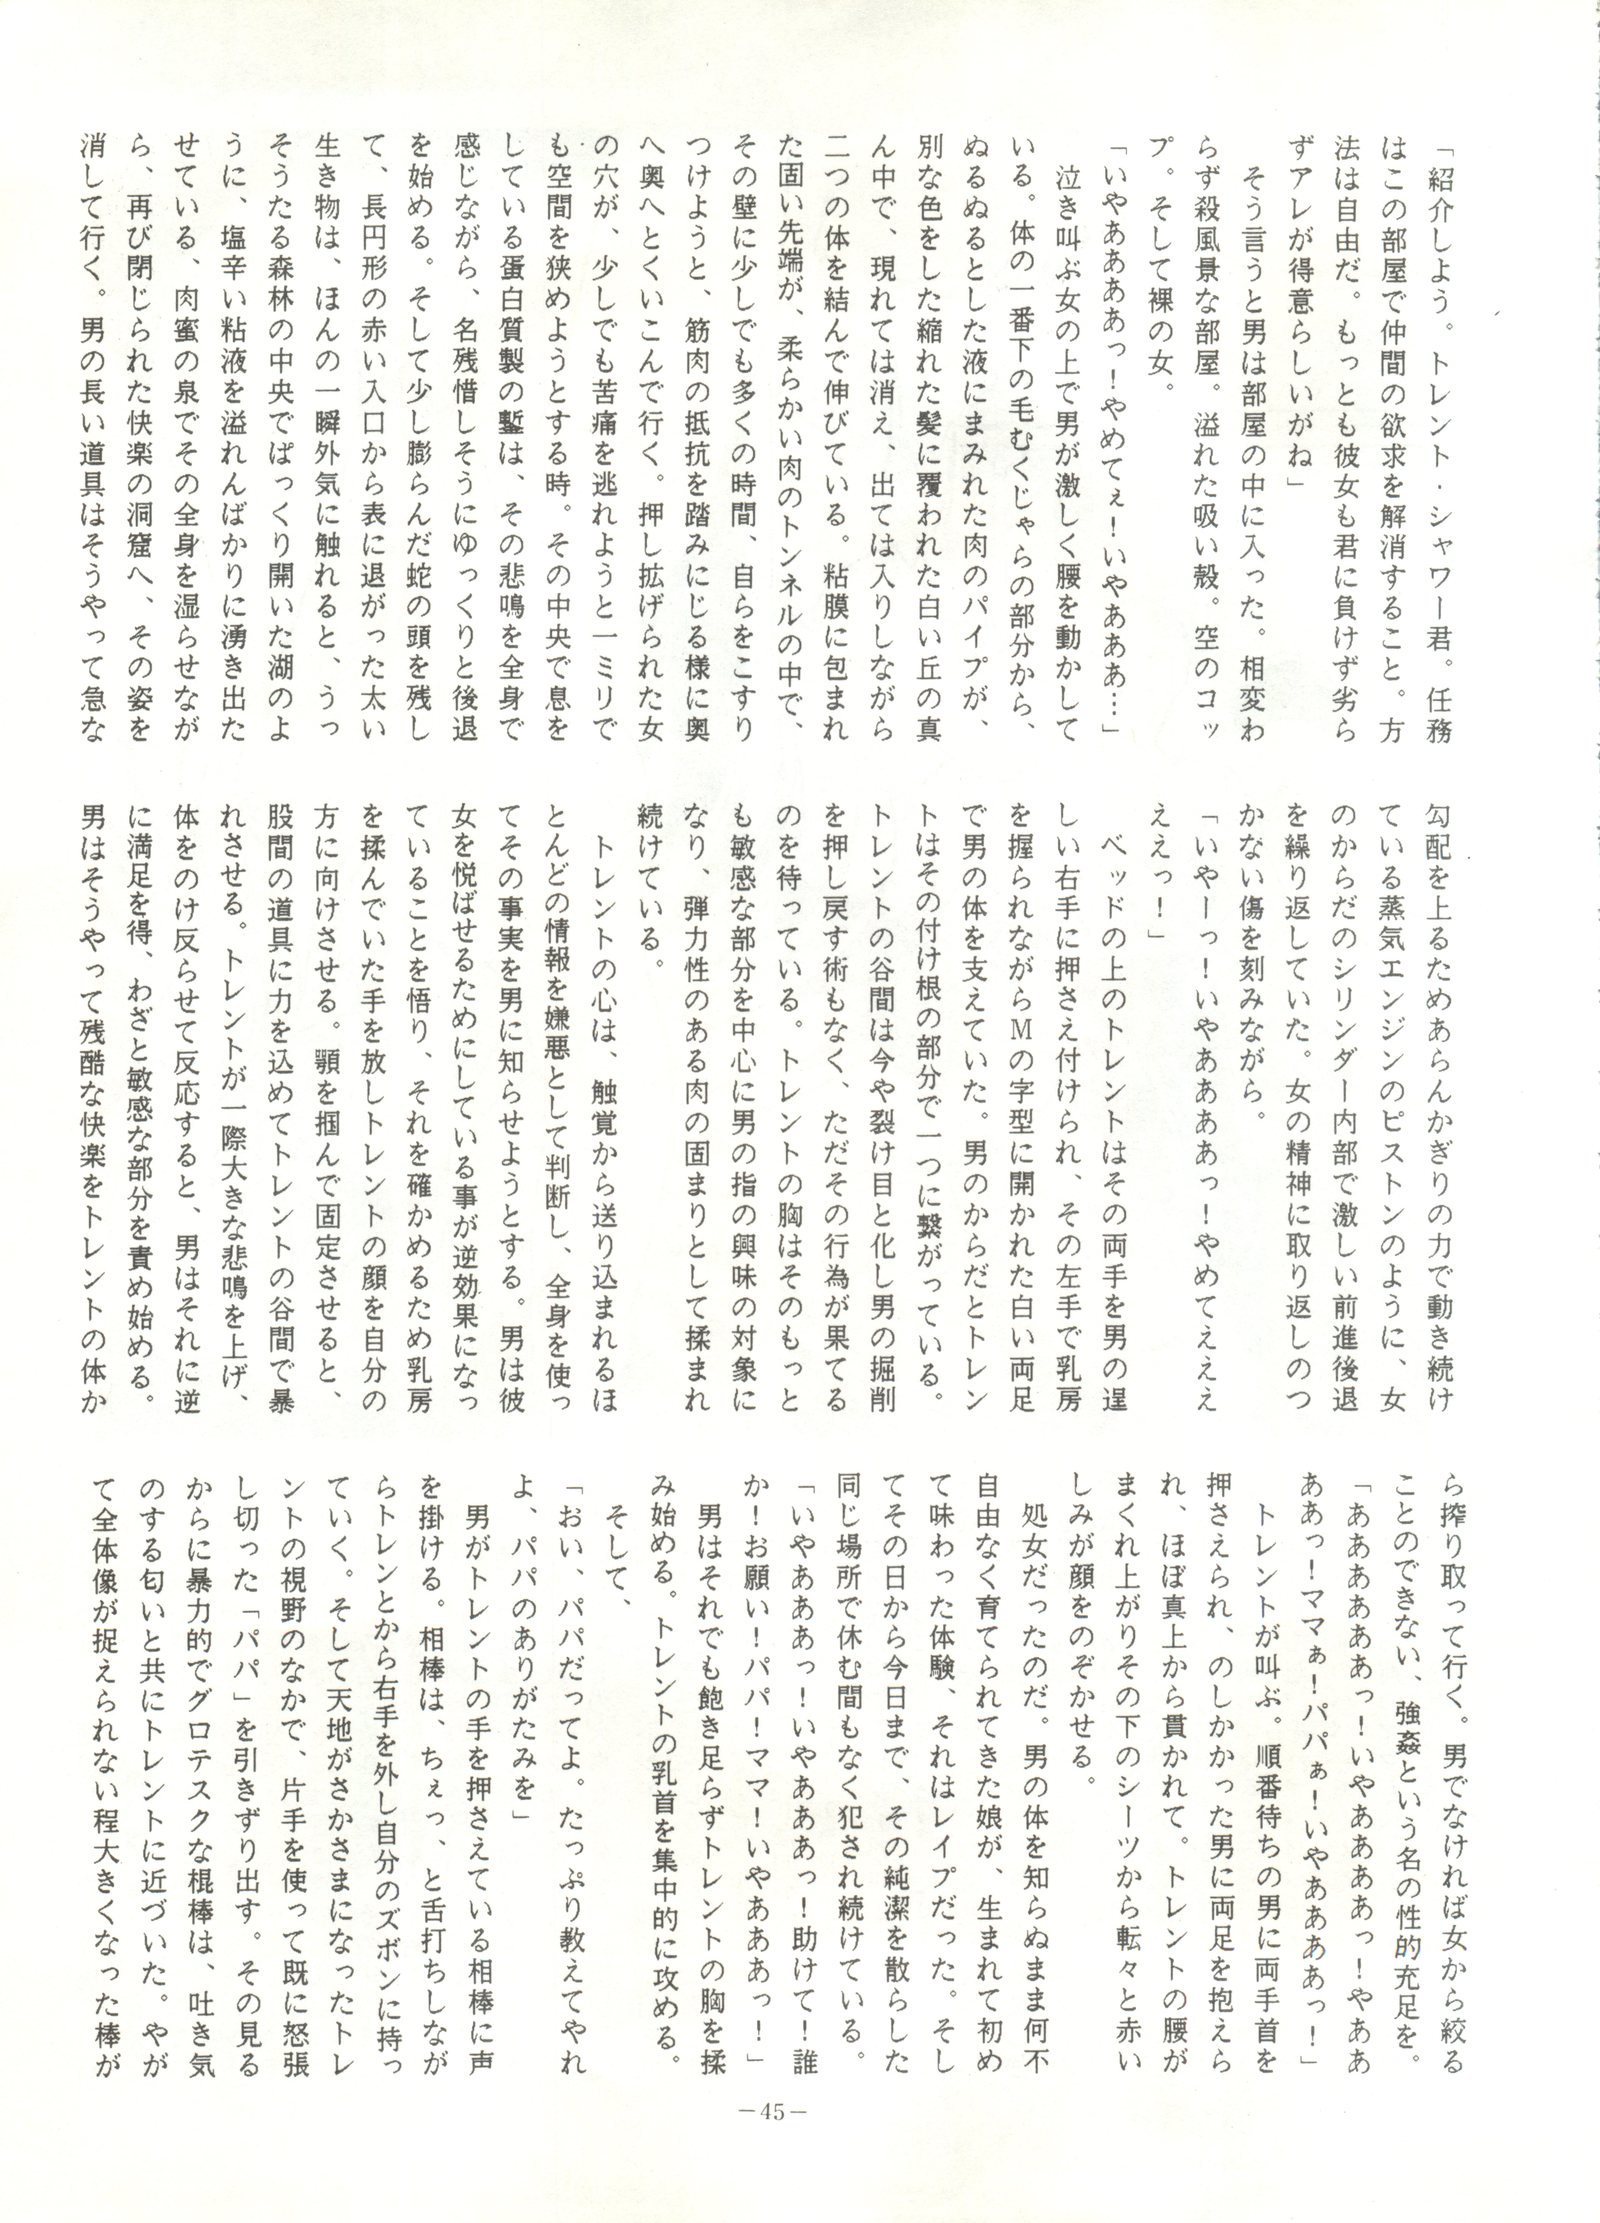 「紹介しよう。トレント・シャワー君。任務
はこの部屋で仲間の欲求を解消すること。方
法は自由だ。もっとも彼女も君に負けず劣ら
ずアレが得意らしいがね」
そう言うと男は部屋の中に入った。相変わ
らず殺風景な部屋。溢れた吸い殻。空のコッ
プ。そして裸の女。
「いやああああっ！やめてぇ！いやあああ…」
泣き叫ぶ女の上で男が激しく腰を動かして
いる。体の一番下の毛むくじゃらの部分から、
ぬるぬるとした液にまみれた肉のパイプが、
別な色をした縮れた髪に覆われた白い丘の真
ん中で、現れては消え、出ては入りしながら
二つの体を結んで伸びている。粘膜に包まれ
た固い先端が、柔らかい肉のトンネルの中で、
その壁に少しでも多くの時間、自らをこすり
つけようと、筋肉の抵抗を踏みにじる様に奥
へ奥へとくいこんで行く。押し拡げられた女
の穴が、少しでも苦痛を逃れようと一ミリで
も空間を狭めようとする時。その中央で息を
している蛋白質製の鑿は、その悲鳴を全身で
感じながら、名残惜しそうにゆっくりと後退
を始める。そして少し膨らんだ蛇の頭を残し
て、長円形の赤い入口から表に退がった太い
生き物は、ほんの一瞬外気に触れると、うっ
そうたる森林の中央でぱっくり開いた湖のよ
うに、塩辛い粘液を溢れんばかりに湧き出た
せている、肉蜜の泉でその全身を湿らせなが
ら、再び閉じられた快楽の洞窟へ、その姿を
消して行く。男の長い道具はそうやって急な
勾配を上るためあらんかぎりの力で動き続け
ている蒸気エンジンのピストンのように、女
のからだのシリンダー内部で激しい前進後退
を繰り返していた。女の精神に取り返しのつ
かない傷を刻みながら。
「いやーっ！いやああああっ！やめてえええ
ええっ！」
ベッドの上のトレントはその両手を男の逞
しい右手に押さえ付けられ、その左手で乳房
を握られながらＭの字型に開かれた白い両足
で男の体を支えていた。男のからだとトレン
トはその付け根の部分で一つに繋がっている。
トレントの谷間は今や裂け目と化し男の掘削
を押し戻す術もなく、ただその行為が果てる
のを待っている。トレントの胸はそのもっと
も敏感な部分を中心に男の指の興味の対象に
なり、弾力性のある肉の固まりとして揉まれ
続けている。
トレントの心は、触覚から送り込まれるほ
とんどの情報を嫌悪として判断し、全身を使っ
てその事実を男に知らせようとする。男は彼
女を悦ばせるためにしている事が逆効果になっ
ていることを悟り、それを確かめるため乳房
を揉んでいた手を放しトレントの顔を自分の
方に向けさせる。顎を掴んで固定させると、
股間の道具に力を込めてトレントの谷間で暴
れさせる。トレントが一際大きな悲鳴を上げ、
体をのけ反らせて反応すると、男はそれに逆
に満足を得、わざと敏感な部分を責め始める。
男はそうやって残酷な快楽をトレントの体か
ら搾り取って行く。男でなければ女から絞る
ことのできない、強姦という名の性的充足を。
「ああああああっ！いやあああああっ！やああ
ああっ！ママぁ！パパぁ！いやああああっ！」
トレントが叫ぶ。順番待ちの男に両手首を
押さえられ、のしかかった男に両足を抱えら
れ、ほぼ真上から貫かれて。トレントの腰が
まくれ上がりその下のシーツから転々と赤い
しみが顔をのぞかせる。
処女だったのだ。男の体を知らぬまま何不
自由なく育てられてきた娘が、生まれて初め
て味わった体験、それはレイプだった。そし
てその日から今日まで、その純潔を散らした
同じ場所で休む間もなく犯され続けている。
「いやあああっ！いやああああっ！助けて！誰
か！お願い！パパ！ママ！いやあああっ！」
男はそれでも飽き足らずトレントの胸を揉
み始める。トレントの乳首を集中的に攻める。
そして、
「おい、パパだってよ。たっぷり教えてやれ
よ、パパのありがたみを」
男がトレントの手を押さえている相棒に声
を掛ける。相棒は、ちぇっ、と舌打ちしなが
らトレンとから右手を外し自分のズボンに持っ
ていく。そして天地がさかさまになったトレ
ントの視野のなかで、片手を使って既に怒張
し切った「パパ」を引きずり出す。その見る
からに暴力的でグロテスクな棍棒は、吐き気
のする匂いと共にトレントに近づいた。やが
て全体像が捉えられない程大きくなった棒が
－45－